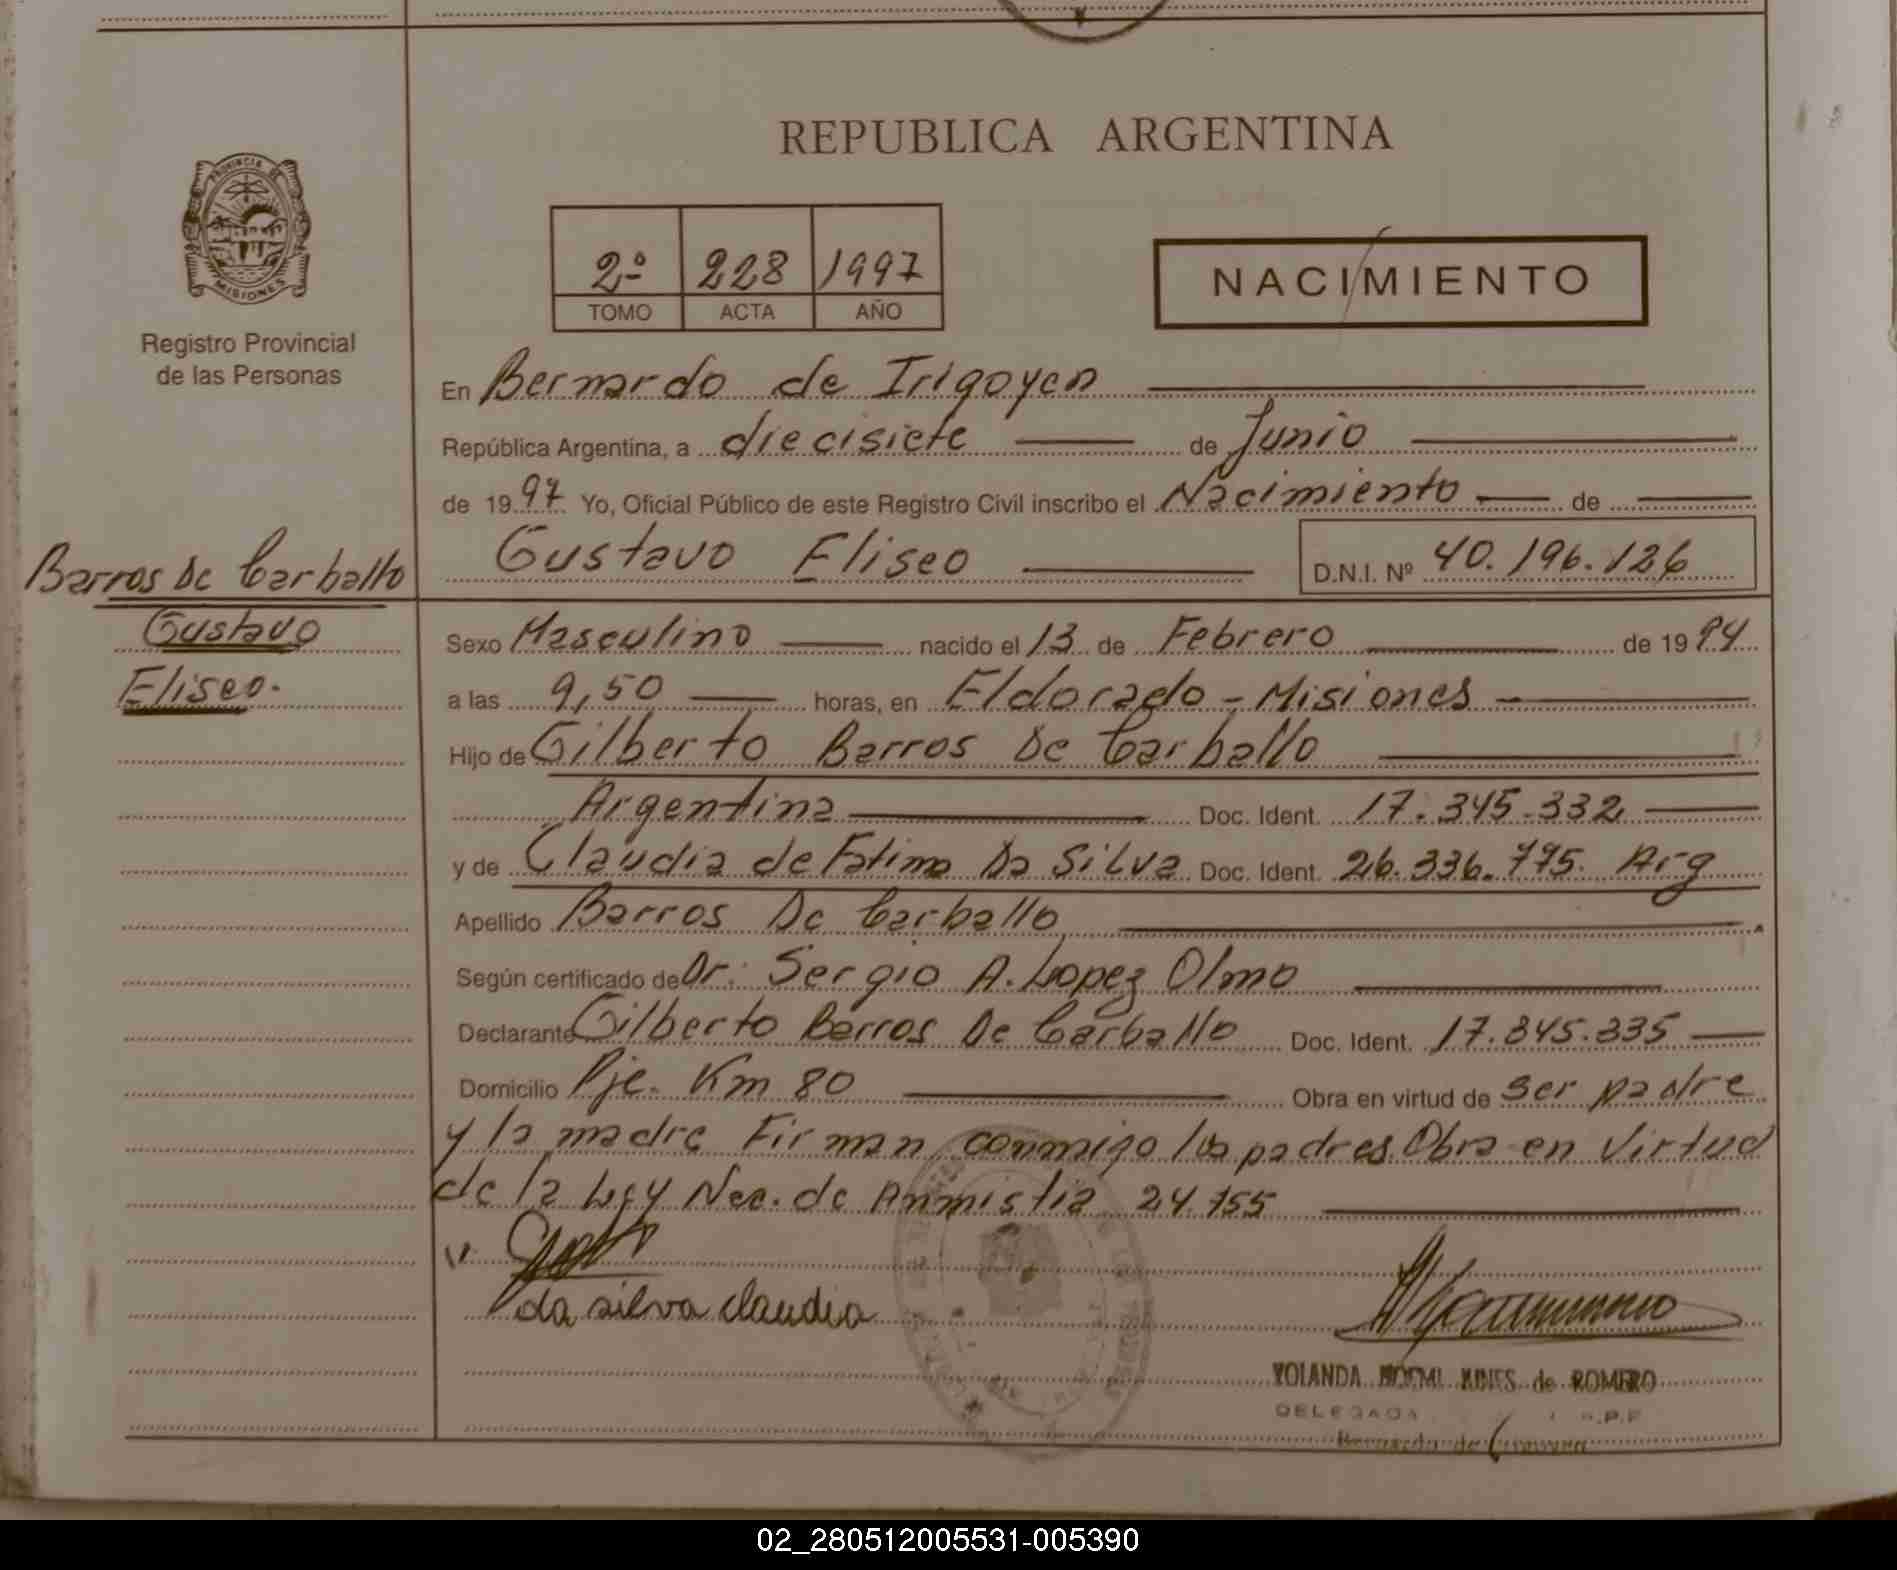 REPUBLICA ARGENTINA
PROVINCIA DE
MISIONES
Registro Provincial
de las Personas
2º 228 1997
TOMO ACTA AÑO
NACIMIENTO
En Bernardo de Irigoyen
República Argentina, a diecisiete de Junio
de 1997 Yo, Oficial Público de este Registro Civil inscribo el Nacimiento de
Gustavo Eliseo D.N.I. Nº 40.196.126
Barros De Carballo
Gustavo
Eliseo.
Sexo Masculino nacido el 13 de Febrero de 1994
a las 9,50 horas, en Eldorado - Misiones
Hijo de Gilberto Barros De Carballo
Argentina Doc. Ident. 17.345.332
y de Claudia de Fatima Da Silva Doc. Ident. 26.336.775. Arg
Apellido Barros De Carballo
Según certificado de Dr. Sergio A. Lopez Olmo
Declarante Gilberto Barros De Carballo Doc. Ident. 17.345.335
Domicilio Pje. Km 80 Obra en virtud de ser padre
y la madre Firman conmigo los padres. Obra en Virtud
de la Ley Nac. de Anmistia 24.755
da silva claudia
YOLANDA NOEMI de ROMERO
DELEGADA R.P.P.
Bernardo de Irigoyen
02_280512005531-005390